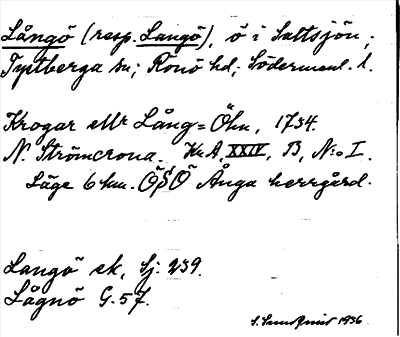 Långö (resp. Langö), ö i Saltsjön;
Tystberga sn; Rönö hd; Södermanl. l.
Krogar eller Lång-Öhn, 1734.
N. Strömcrona. Kr. A. XXIV, B, N:o I.
Läge 6 km. ÖSÖ Ånga herrgård.
Langö ek, Sj. 239.
Lågnö G. 57.
1936